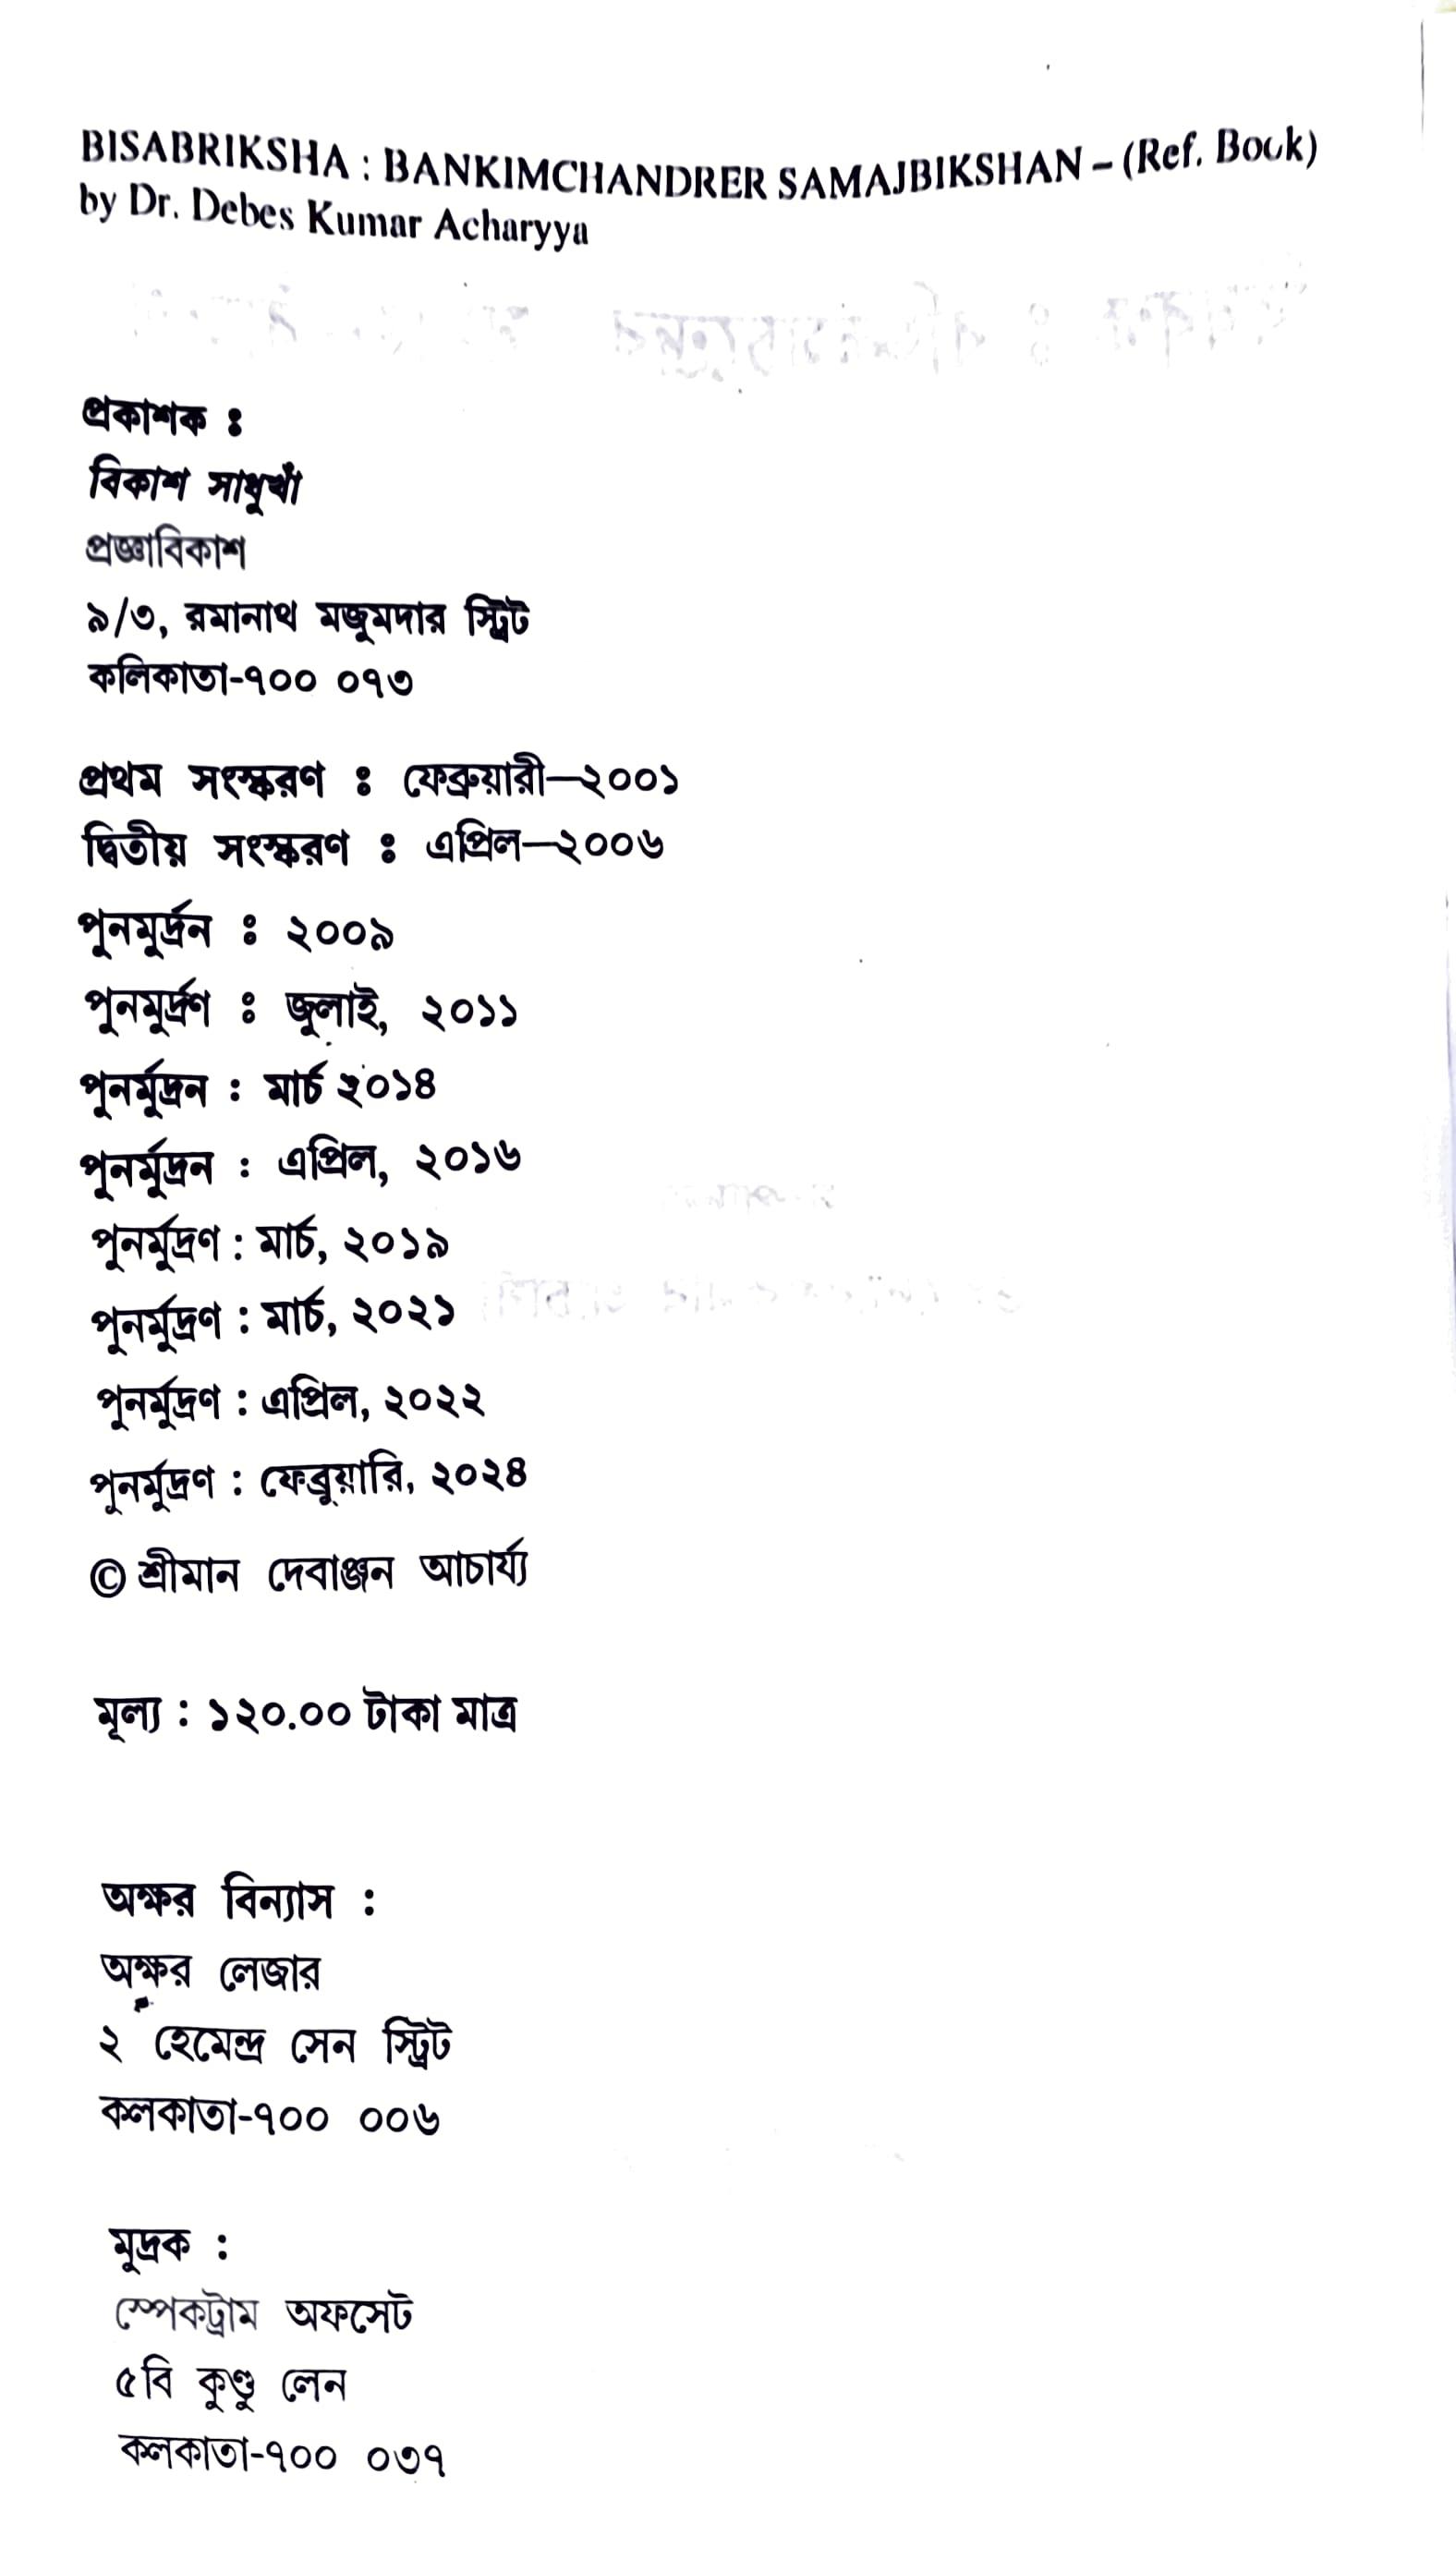 BISABRIKSHA : BANKIMCHANDRER SAMAJBIKSHAN – (Ref. Book)
by Dr. Debes Kumar Acharyya
প্রকাশক ঃ
বিকাশ সাধুখাঁ
প্রজ্ঞাবিকাশ
৯/৩, রমানাথ মজুমদার স্ট্রিট
কলিকাতা-৭০০ ০৭৩
প্রথম সংস্করণ ঃ ফেব্রুয়ারী—২০০১
দ্বিতীয় সংস্করণ ঃ এপ্রিল—২০০৬
পুনমুর্দ্রন ঃ ২০০৯
পুনমুর্দ্রণ ঃ জুলাই, ২০১১
পুনর্মুদ্রন : মার্চ ২০১৪
পুনর্মুদ্রন : এপ্রিল, ২০১৬
পুনর্মুদ্রণ : মার্চ, ২০১৯
পুনর্মুদ্রণ : মার্চ, ২০২১
পুনর্মুদ্রণ : এপ্রিল, ২০২২
পুনর্মুদ্রণ : ফেব্রুয়ারি, ২০২৪
© শ্রীমান দেবাঞ্জন আচার্য্য
মূল্য : ১২০.০০ টাকা মাত্র
অক্ষর বিন্যাস :
অক্ষর লেজার
২ হেমেন্দ্র সেন স্ট্রিট
কলকাতা-৭০০ ০০৬
মুদ্রক :
স্পেকট্রাম অফসেট
৫বি কুণ্ডু লেন
কলকাতা-৭০০ ০৩৭